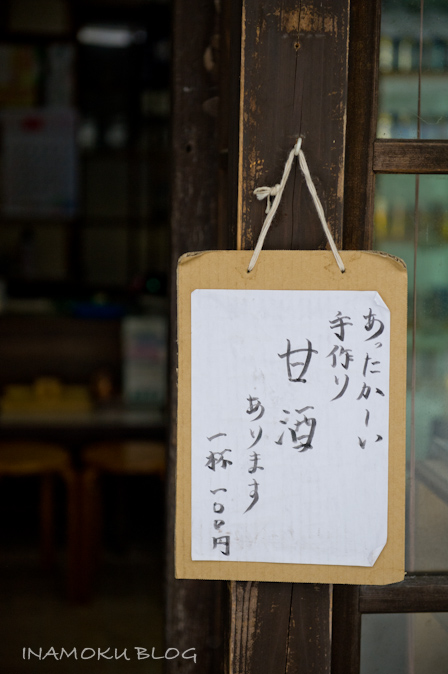 あったかーい
手作り
甘酒
あります
一杯 一〇〇円
INAMOKU BLOG